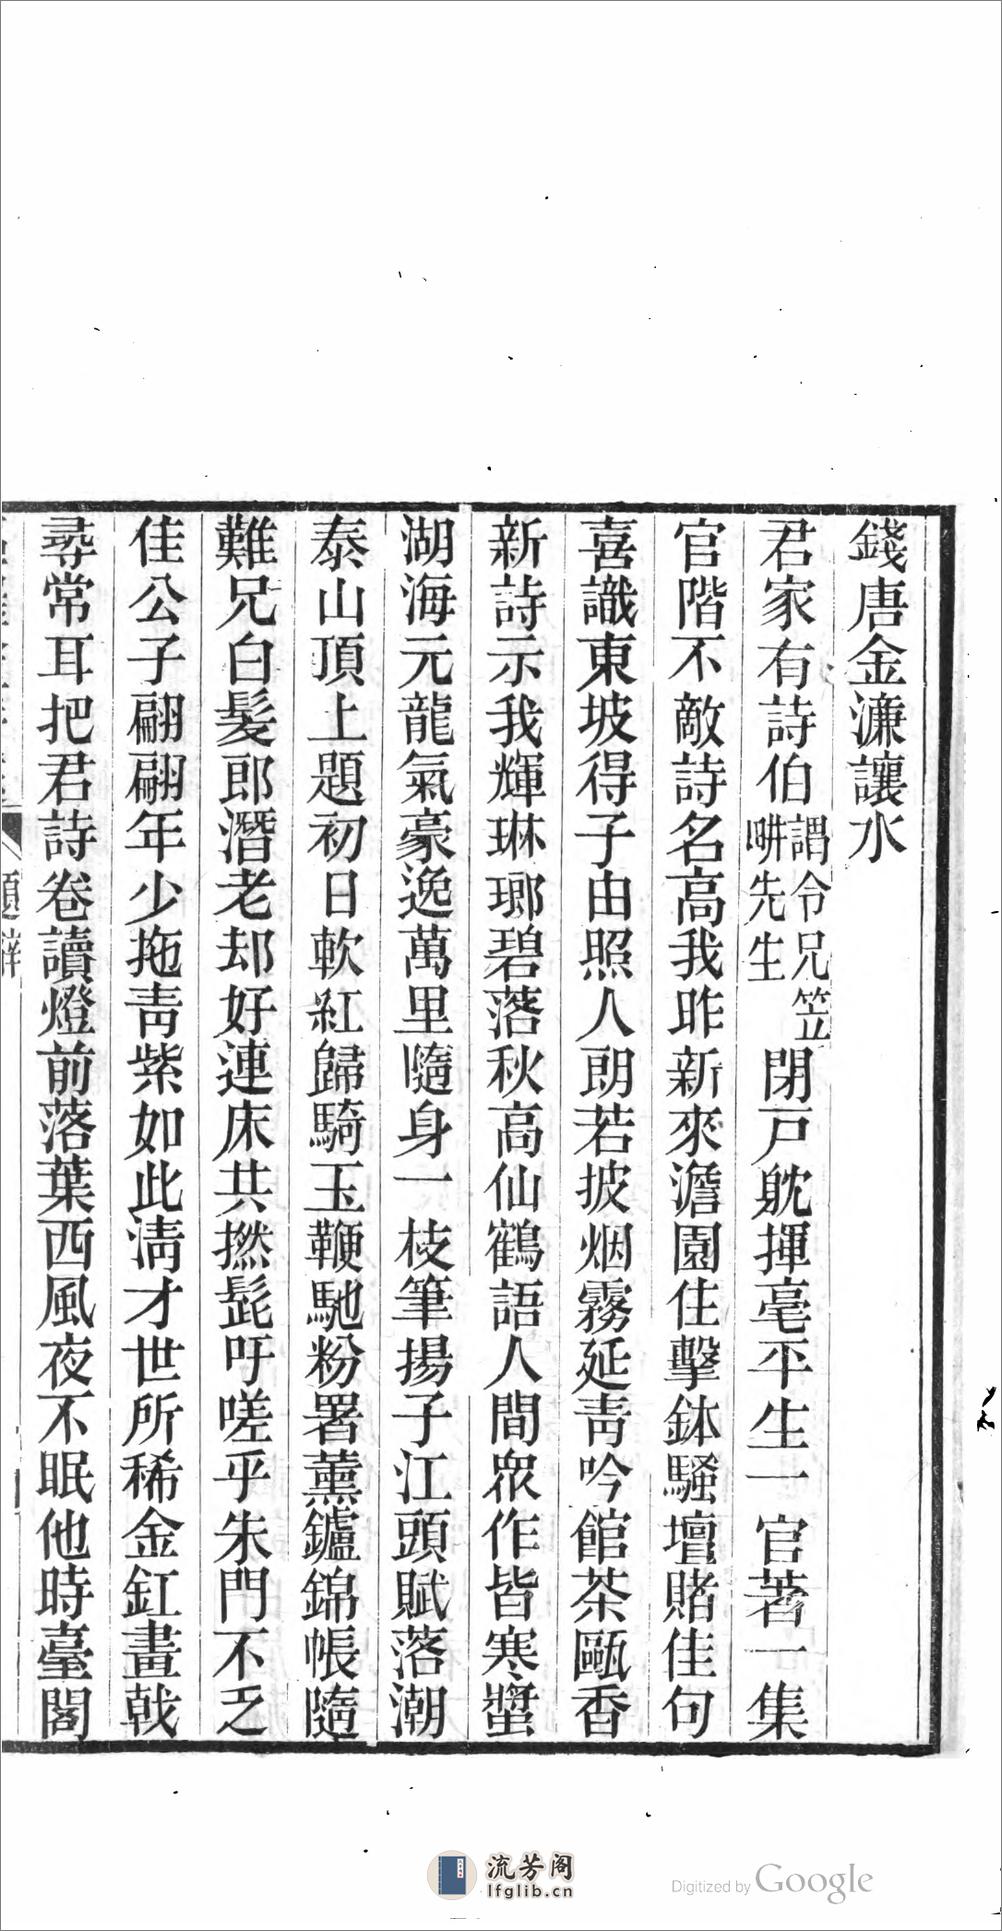 錢唐金濂讓水
君家有詩伯謂令兄笠畊先生閉戸躭揮毫平生一官著一集
官階不敵詩名高我昨新來澹園住擊鉢騷壇賭佳句
喜識東坡得子由照人朗若披烟霧延靑吟館茶甌香
新詩示我輝琳瑯碧落秋高仙鶴語人間衆作皆寒螿
湖海元龍氣豪逸萬里隨身一枝筆揚子江頭賦落潮
泰山頂上題初日軟紅歸騎玉鞭馳粉署薰鑪錦帳隨
難兄白髮郎潛老却好連床共撚髭吁嗟乎朱門不乏
佳公子翩翩年少拖靑紫如此淸才世所稀金釭畫戟
尋常耳把君詩卷讀燈前落葉西風夜不眠他時臺閣
題辭
流芳阁
lfglib.cn
Digitized by Google